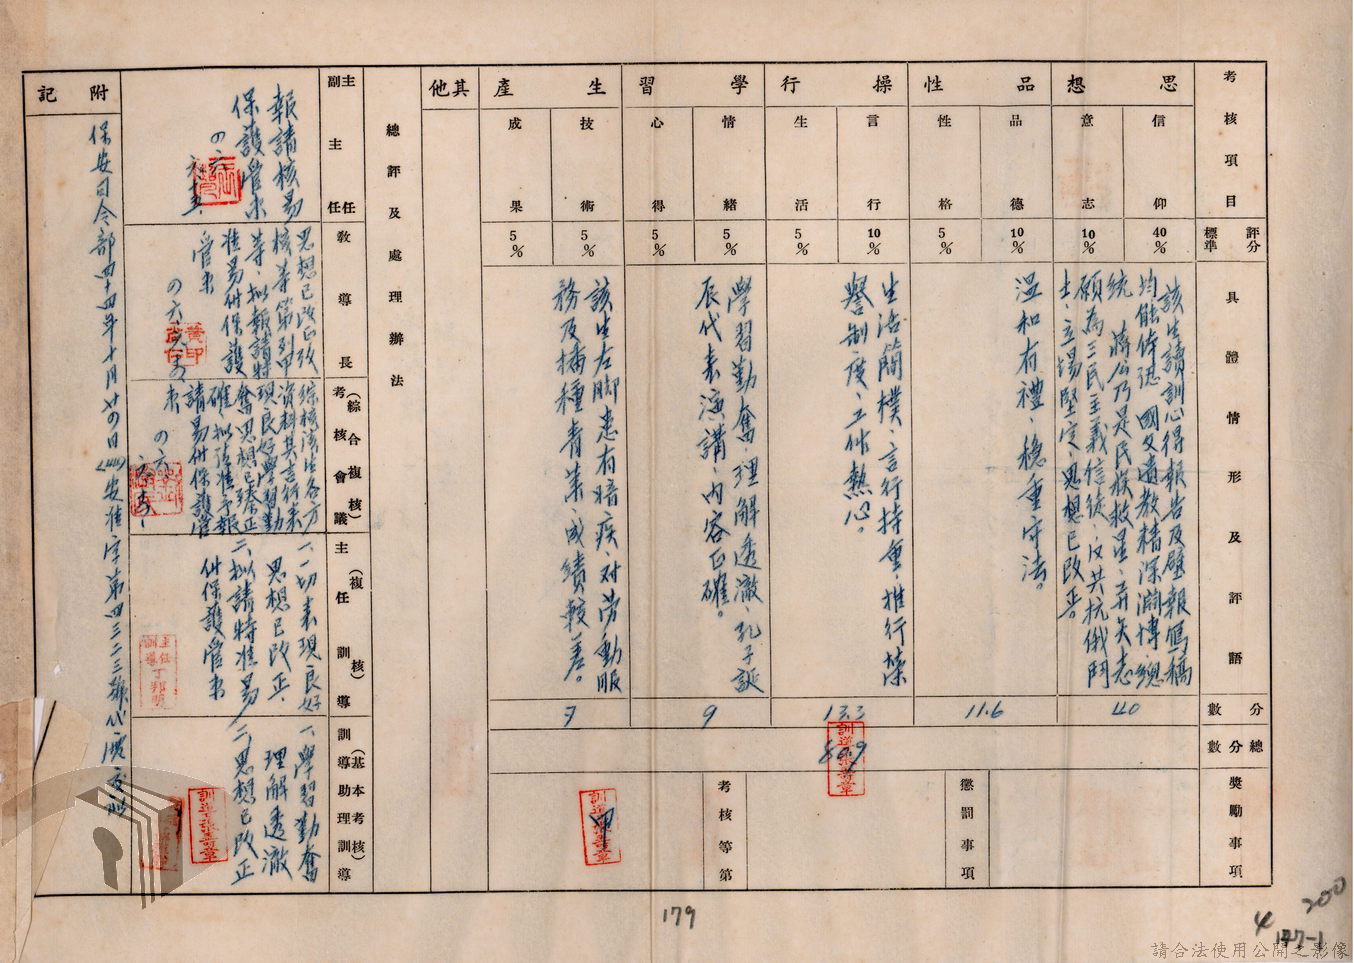 考核項目
評分標準
具體情形及評語
分數
總分數
獎勵事項
思想
信仰
40%
意志
10%
該生讀訓心得報告及壁報寫稿
均能倬恐 國父遺教精深淵博、總
統 蔣公乃是民族救星、並矢志
願為三民主義信徒、反共抗俄鬥
士、立場堅定、思想已改正。
40
品性
品德
10%
性格
5%
溫和有禮、穩重守法。
11.6
操行
言行
10%
生活
5%
生活簡樸、言行持重、推行榮
譽制度、工作熱心。
13.3
學習
情緒
5%
心得
5%
學習勤奮、理解透澈、孔子誕
辰代表演講、內容正確。
9
生產
技術
5%
成果
5%
該生左脚患有暗疾、对勞動服
務及播種青菜、成績較差。
7
80.9
懲罰事項
考核等第
甲
其他
總評及處理辦法
主任
副主任
報請核易
保護管束
教導長
思想已改正考
核等第列甲
等、拟報請特
准易付保護
管束
(綜合複核)
考核會議
綜核該生各方
資料其言行表
現良好學習勤
奮思想已臻正
確拟請准予報
請易付保護管
束
(複核)
主任訓導
一、一切表現良好
思想已改正、
二、拟請特准易
付保護管束
(基本考核)
訓導助理訓導
一、學習勤奮
理解透澈
二、思想已改正
附記
保安司令部四十四年十月廿四日(44)安准字第四三二三號代
179
200
4
177-1
請合法使用公開之影像